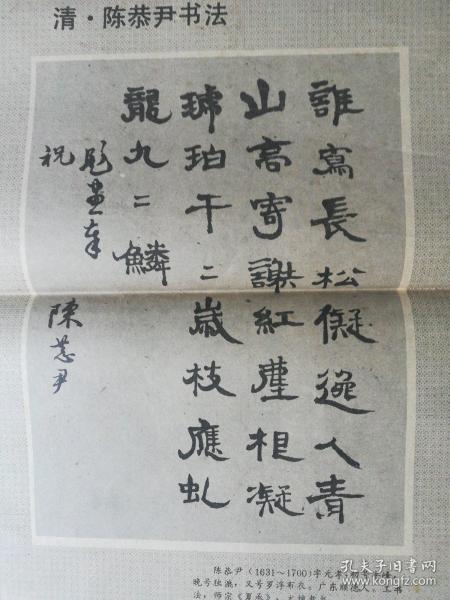 清·陈恭尹书法
誰寫長松儗逸人青
山高寄謝紅塵相凝
琥珀千〻歲枝應虬
龍九〻鱗
題畫奉
祝
陳恭尹
陈恭尹（1631～1700）字元孝
晚号独漉，又号罗浮布衣。广东顺德人。工书
法，师宗《夏承》
孔夫子旧书网